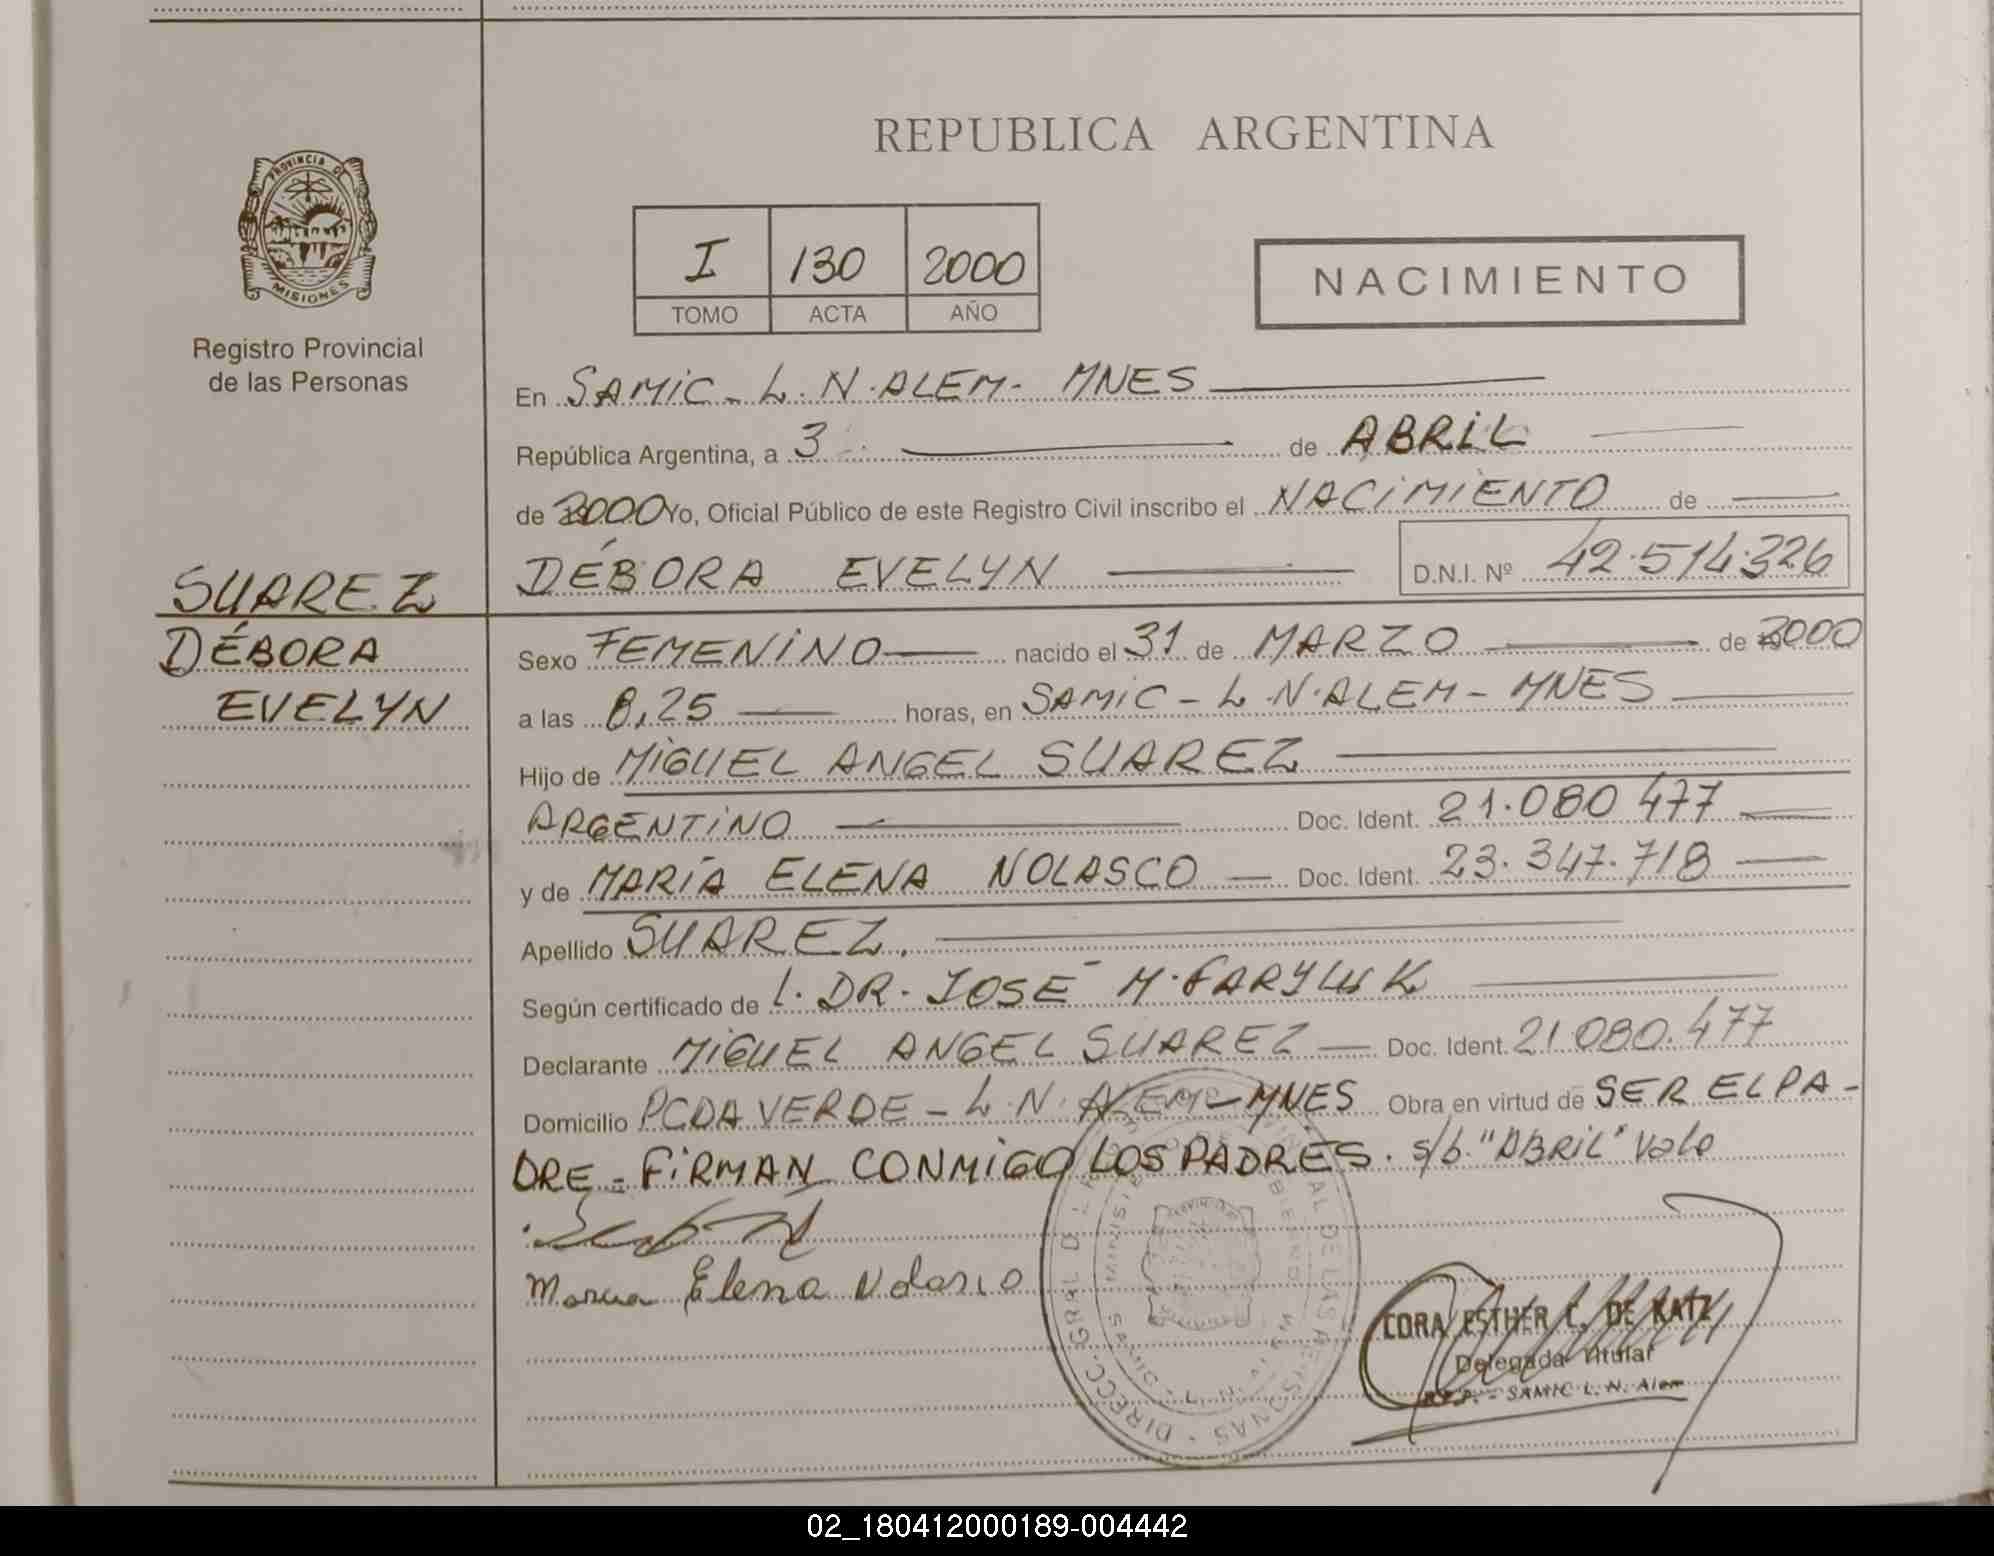 REPUBLICA ARGENTINA
PROVINCIA DE
MISIONES
Registro Provincial
de las Personas
I 130 2000
TOMO ACTA AÑO
NACIMIENTO
En SAMIC - L. N. ALEM - MNES
República Argentina, a 3 de ABRIL
de 2000 Yo, Oficial Público de este Registro Civil inscribo el NACIMIENTO de
DÉBORA EVELYN D.N.I. Nº 42.514.326
SUAREZ
DÉBORA
EVELYN
Sexo FEMENINO nacido el 31 de MARZO de 2000
a las 8,25 horas, en SAMIC - L. N. ALEM - MNES
Hijo de MIGUEL ANGEL SUAREZ
ARGENTINO Doc. Ident. 21.080 477
y de MARÍA ELENA NOLASCO Doc. Ident. 23.347.718
Apellido SUAREZ.
Según certificado de l. DR. JOSÉ M. FARYLUK
Declarante MIGUEL ANGEL SUAREZ Doc. Ident. 21 080.477
Domicilio PCDA VERDE - L. N. ALEM - MNES Obra en virtud de SER EL PA-
DRE - FIRMAN CONMIGO LOS PADRES. s/b. "ABRIL" Vale
Maria Elena Nolasco
CORA ESTHER C. DE KATZ
Delegada Titular
R.P.P. - SAMIC L. N. Alem
02_180412000189-004442